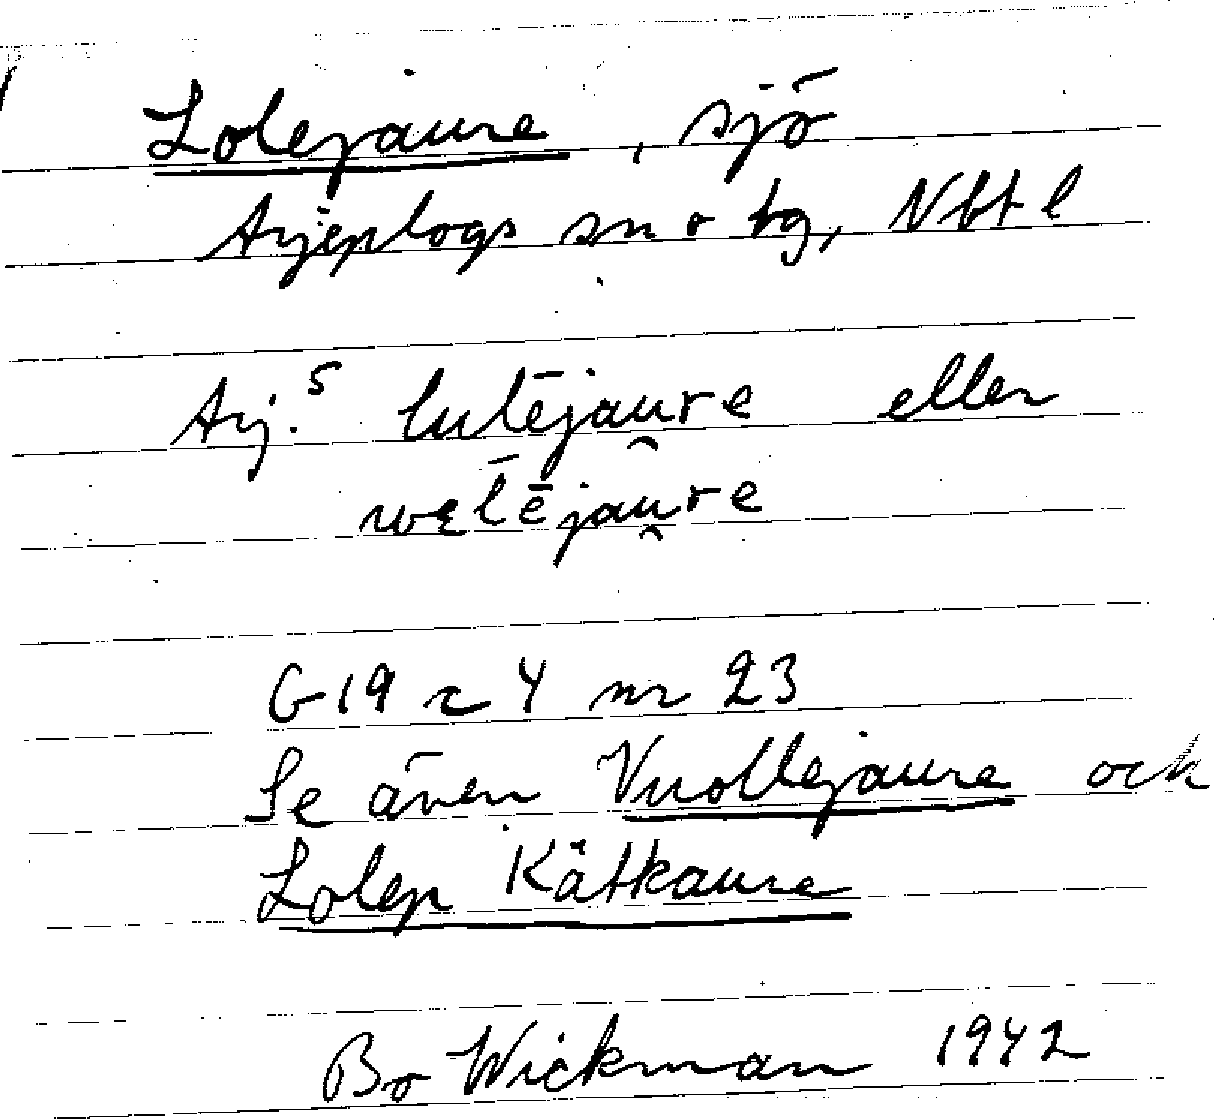 Lolejaure, sjö
Arjeplogs sn o tg, Nbt l
Arj.ˢ lulējau̯re eller
l̄ējau̯re
G19 c 4 nr 23
Se även Vuollejaure och
Lolep Kätkaure
Bo Wickman 1942